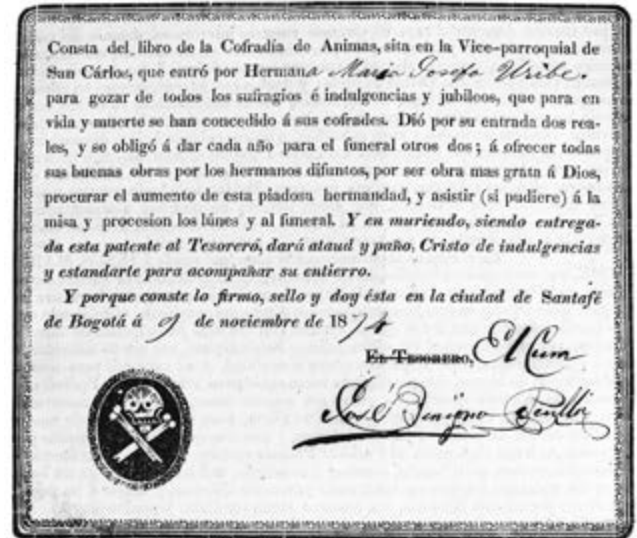 Consta del libro de la Cofradía de Animas, sita en la Vice-parroquial de
San Cárlos, que entró por Hermana María Josefa Uribe.
para gozar de todos los sufragios é indulgencias y jubileos, que para en
vida y muerte se han concedido á sus cofrades. Dió por su entrada dos rea-
les, y se obligó á dar cada año para el funeral otros dos; á ofrecer todas
sus buenas obras por los hermanos difuntos, por ser obra mas grata á Dios,
procurar el aumento de esta piadosa hermandad, y asistir (si pudiere) á la
misa y procesion los lúnes y al funeral. Y en muriendo, siendo entrega-
da esta patente al Tesoreró, dará ataud y paño, Cristo de indulgencias
y estandarte para acompañar su entierro.
Y porque conste lo firmo, sello y doy ésta en la ciudad de Santafé
de Bogotá á 9 de noviembre de 1874
EL TESORERO, El Cura
José Benigno